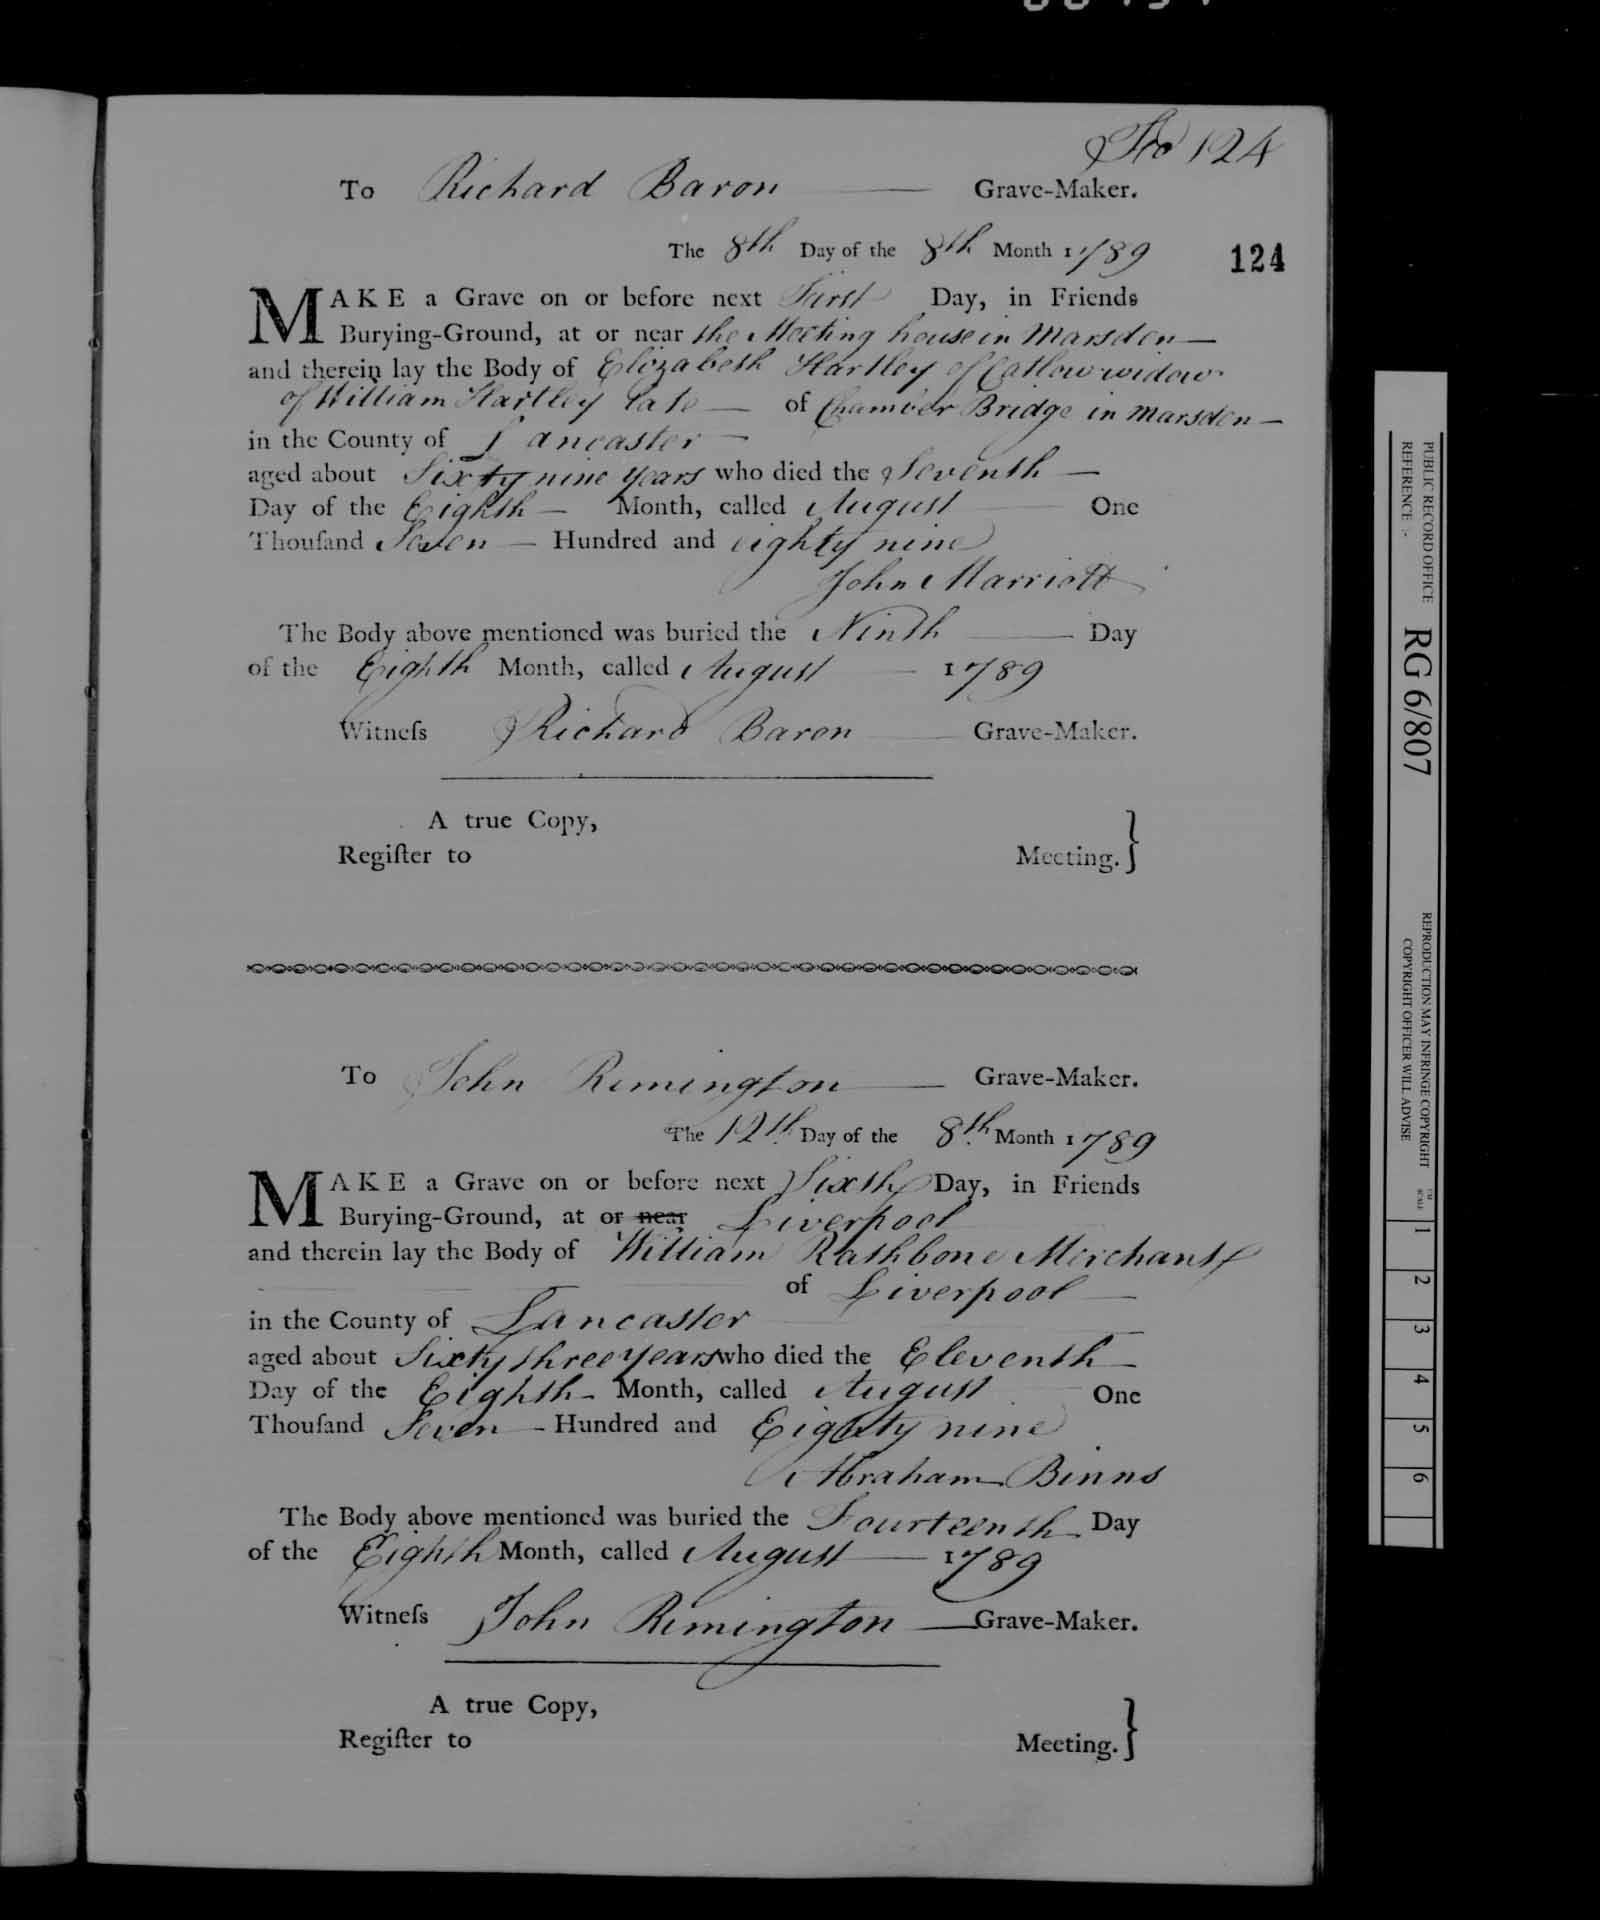 Fo 124
To Richard Baron Grave-Maker.
The 8th Day of the 8th Month 1789
124
MAKE a Grave on or before next First Day, in Friends
Burying-Ground, at or near the Meeting house in Marsden
and therein lay the Body of Elizabeth Hartley of Catlow widow
of William Hartley late of Chamber Bridge in Marsden
in the County of Lancaster
aged about Sixty nine years who died the Seventh
Day of the Eighth Month, called August One
Thouſand Seven Hundred and eighty nine
John Marriott
The Body above mentioned was buried the Ninth Day
of the Eighth Month, called August 1789
Witneſs Richard Baron Grave-Maker.
A true Copy,
Regiſter to Meeting. }
To John Rimington Grave-Maker.
The 12th Day of the 8th Month 1789
MAKE a Grave on or before next Sixth Day, in Friends
Burying-Ground, at or near Liverpool
and therein lay the Body of William Rathbone Merchant
of Liverpool
in the County of Lancaster
aged about Sixty three years who died the Eleventh
Day of the Eighth Month, called August One
Thouſand Seven Hundred and Eighty nine
Abraham Binns
The Body above mentioned was buried the Fourteenth Day
of the Eighth Month, called August 1789
Witneſs John Rimington Grave-Maker.
A true Copy,
Regiſter to Meeting. }
PUBLIC RECORD OFFICE
REFERENCE :-
RG 6/807
REPRODUCTION MAY INFRINGE COPYRIGHT
COPYRIGHT OFFICER WILL ADVISE
1 2 3 4 5 6